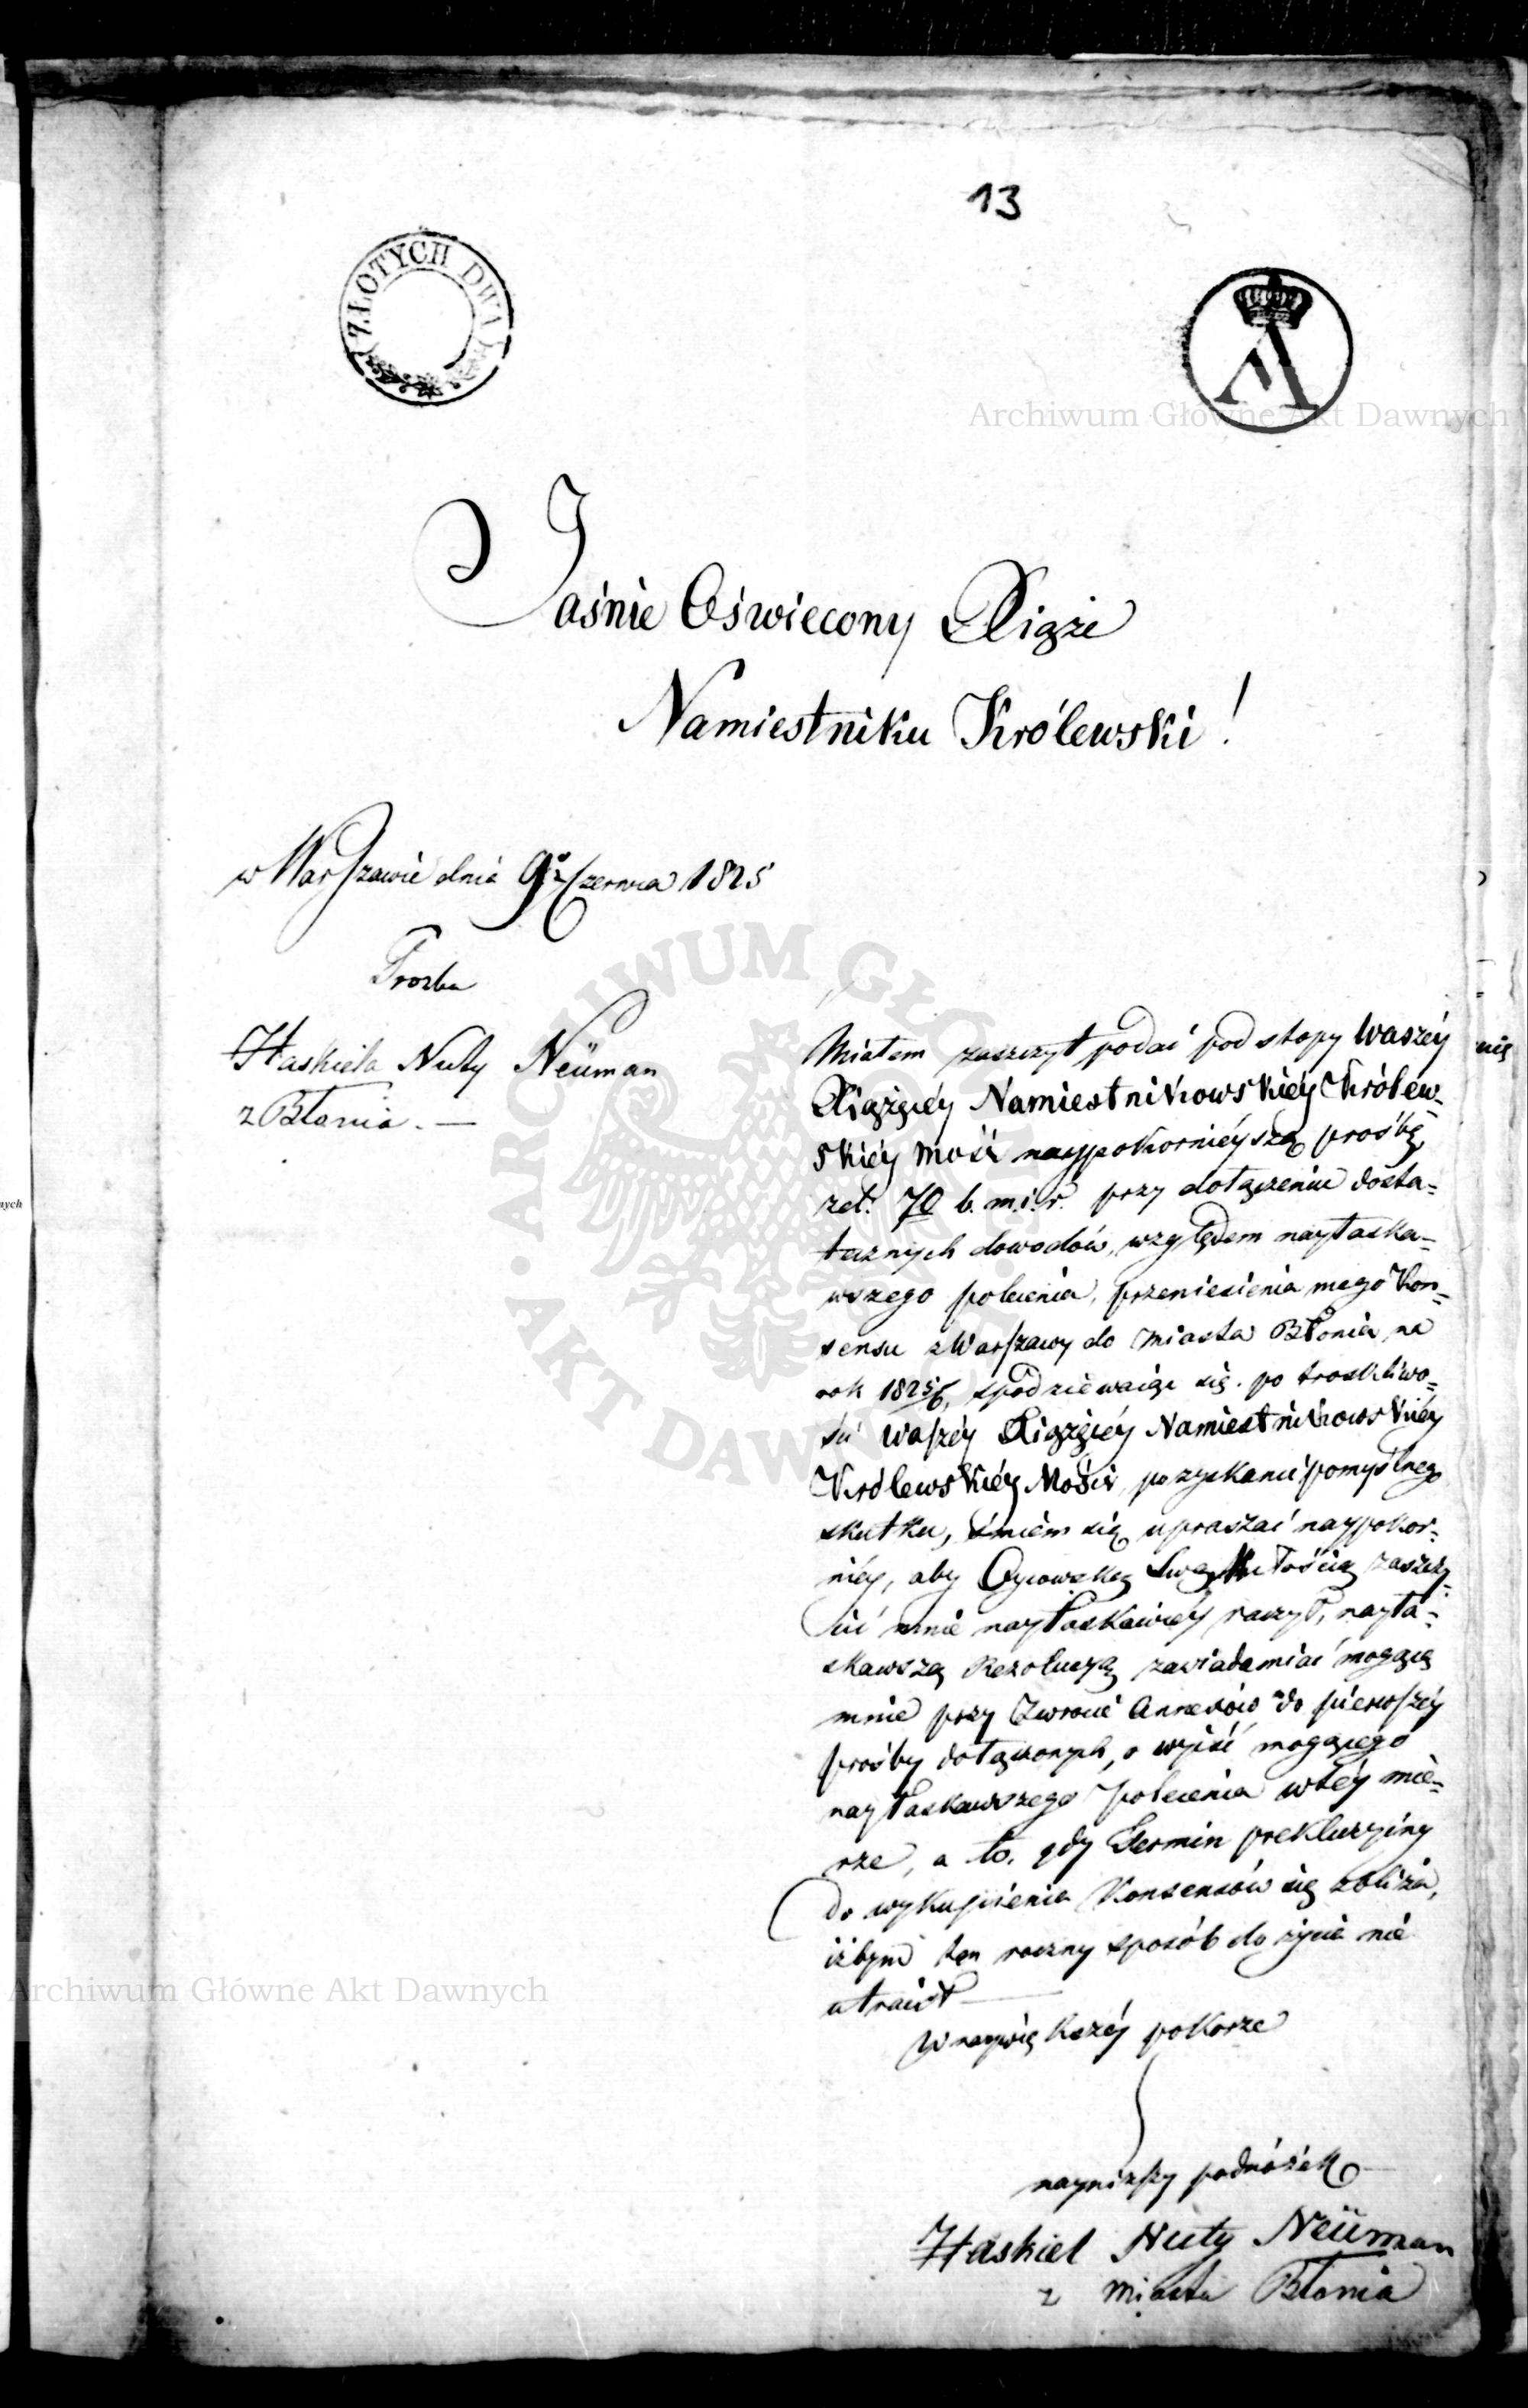 13
ZŁOTYCH DWA
A
Archiwum Główne Akt Dawnych
Jaśnie Oświecony Xiąże
Namiestniku Królewski!
w Warszawie dnia 9º Czerwca 1825
Prozba
Haskiela Nuty Neüman
z Błonia. —
Miałem zaszczyt podać pod stopy Waszéy
Xiążęcéy Namiestnikowskiéy Królew-
skiéy Mości naypokornieyszą prośbę
70 b. m. i r. przy dołączeniu dosta-
tecznych dowodów, względem nayłaska-
wszego polecenia, przeniesienia mego Kon-
sensu z Warszawy do miasta Błonia na
rok 1825/6, spodziewaiąc się. po troskliwo-
ści Waszéy Xiążęcéy Namiestnikowskiéy
Królewskiéy Mości, pozyskanie pomyślnego
skutku, śmiém się upraszać naypokor-
niéy, aby Oycowską Swą Miłością zaszczy-
cić mnie nayłaskawiéy raczył, nayła-
skawszą Rezolucyą zawiadamiać mogącą
mnie przy zwrocie Annexów do pierwszéy
prośby dołączonych, o wyiść mogącego
nayłaskawszego polecenia w téy mie-
rze, a to. gdy Termin prekluzyiny
do wykupienia Konsensów się zbliża,
iżbym ten roczny sposób do życia nie
utracił —
W naywiększéy pokorze
naynizszy podnóżek
Haskiel Nuty Neüman
z miasta Błonia
nych
nię
ARCHIWUM GŁÓWNE
AKT DAWNYCH
Archiwum Główne Akt Dawnych